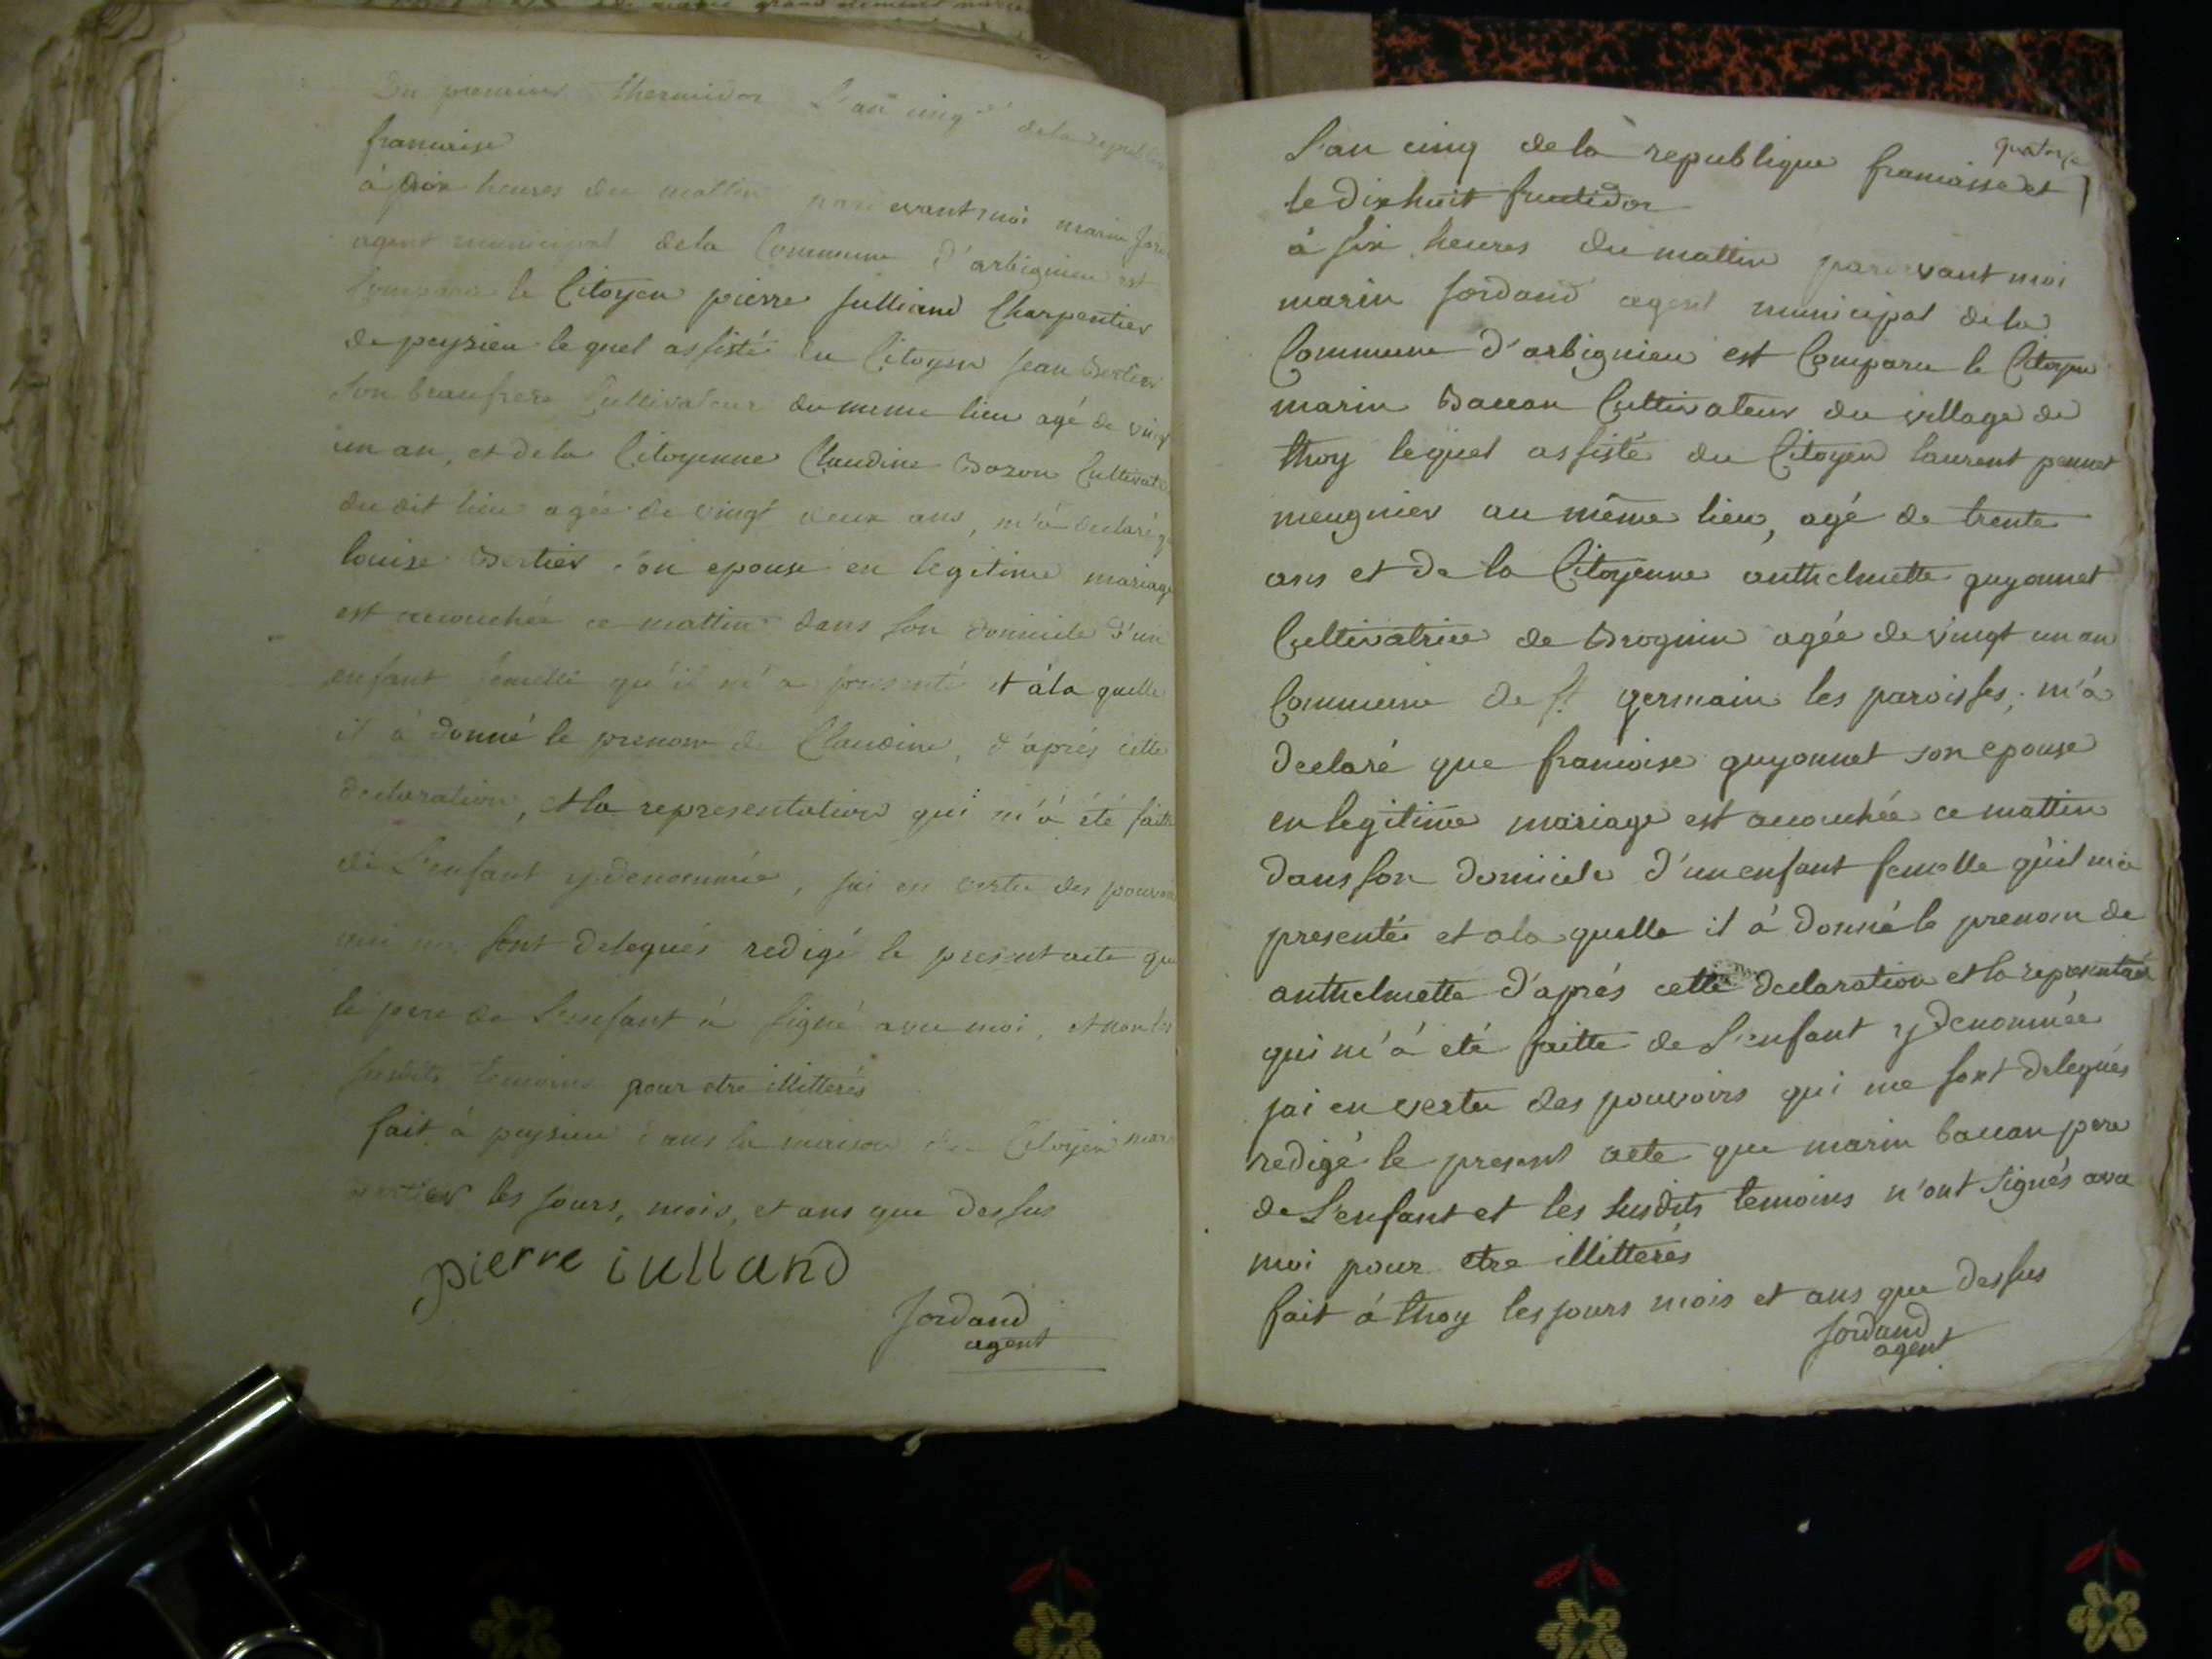 Du premier thermidor L'an cinq de la republi
francaise
à dix heures du mattin par devant moi marin Jord
agent municipal de la Commune d'arbignieu est
Comparu le Citoyen pierre Julliand Charpentier
de peyzieu lequel assisté du Citoyen Jean Bertier
son beaufrere Cultivateur du meme lieu agé de vingt
un an, et de la Citoyenne Claudine Bozon Cultivat
du dit lieu agée de vingt deux ans, m'à declaré q
louise Bertier son epouse en legitime mariage
est accouchée ce mattin dans son domicile d'un
enfant femelle qu'il m'a presenté et à la quelle
il à donné le prenom de Claudine, d'aprés cette
declaration, et la representation qui m'à été faitte
de L'enfant y denommée, jai en vertu des pouvoi
qui me sont delegués redigé le present acte que
le pere de L'enfant à signé avec moi, et non les
susdits temoins pour etre illitterés
fait à peyzieu dans la maison du Citoyen
Bertier les jours, mois, et ans que dessus
pierre iulland
Jordand
agent
quatorze
L'an cinq de la republique francaisse et
le dixhuit fructidor
à six heures du mattin pardevant moi
marin Jordand agent municipal de la
Commune d'arbignieu est Comparu le Citoyen
marin Baccon Cultivateur du village de
thoy lequel assisté du Citoyen laurent pennet
meugnier au même lieu, agé de trente
ans et de la Citoyenne anthelmette guyonnet
Cultivatrice de Brognin agée de vingt un an
Commune de st germain les paroisses, m'à
declaré que francoise guyonnet son epouse
en legitime mariage est accouchée ce mattin
dans son domicile d'un enfant femelle qu'il m'a
presentée et a la quelle il à donné le prenom de
anthelmette d'aprés cette declaration et la representation
qui m'à eté faitte de L'enfant y denommée
jai en vertu des pouvoirs qui me sont delegués
redigé le present acte que marin baccon pere
de L'enfant et les susdits temoins n'ont signés avec
moi pour etre illitterés
fait à thoy les jours mois et ans que dessus
Jordand
agent